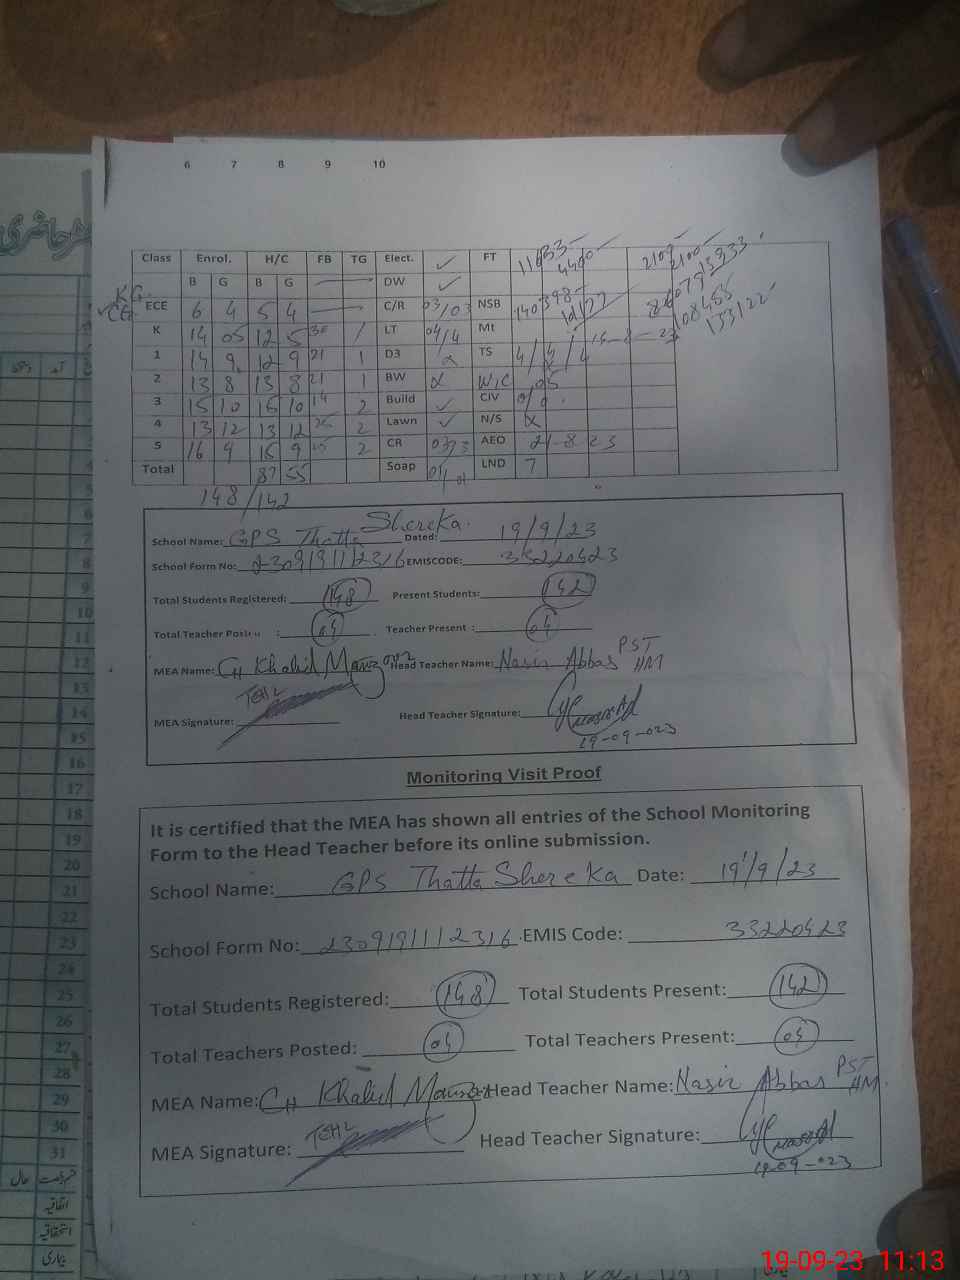 6 7 8 9 10
Class Enrol. H/C FB TG Elect. ✓ FT 4400 2109 2100
B G B G DW ✓
ECE 6 4 5 4 C/R 03/03 NSB
K 14 05 12 5 30 1 LT 04/4 Mt
1 14 9 12 9 21 1 D3 TS 4/4/4 15-8-23
2 13 8 13 8 21 1 BW W/C 05
3 15 10 15 10 19 2 Build ✓ CIV 0/0
4 13 12 13 12 25 2 Lawn ✓ N/S x
5 16 9 15 9 25 2 CR 03/3 AEO 21-8-23
Total 87 55 Soap LND 7
148/142
School Name: GPS Thatta Shereka. Dated: 19/9/23
School Form No: 2309191112316 EMISCODE: 33220423
Total Students Registered: 148 Present Students: 142
Total Teacher Posted : 04 Teacher Present : 04
MEA Name: CH Khalid Manzoor Head Teacher Name: Nasir Abbas PST HM
MEA Signature: Head Teacher Signature:
19-09-023
Monitoring Visit Proof
It is certified that the MEA has shown all entries of the School Monitoring
Form to the Head Teacher before its online submission.
School Name: GPS Thatta Shereka Date: 19/9/23
School Form No: 2309191112316 .EMIS Code: 33220423
Total Students Registered: 148 Total Students Present: 142
Total Teachers Posted: 04 Total Teachers Present: 04
MEA Name: CH Khalid Manzoor Head Teacher Name: Nasir Abbas PST HM.
MEA Signature: Head Teacher Signature:
19-09-023
5
6
7
8
9
10
11
12
13
14
15
16
17
18
19
20
21
22
23
24
25
26
27
28
29
30
31
اتفاقیہ
استحقاقیہ
بیماری
19-09-23 11:13